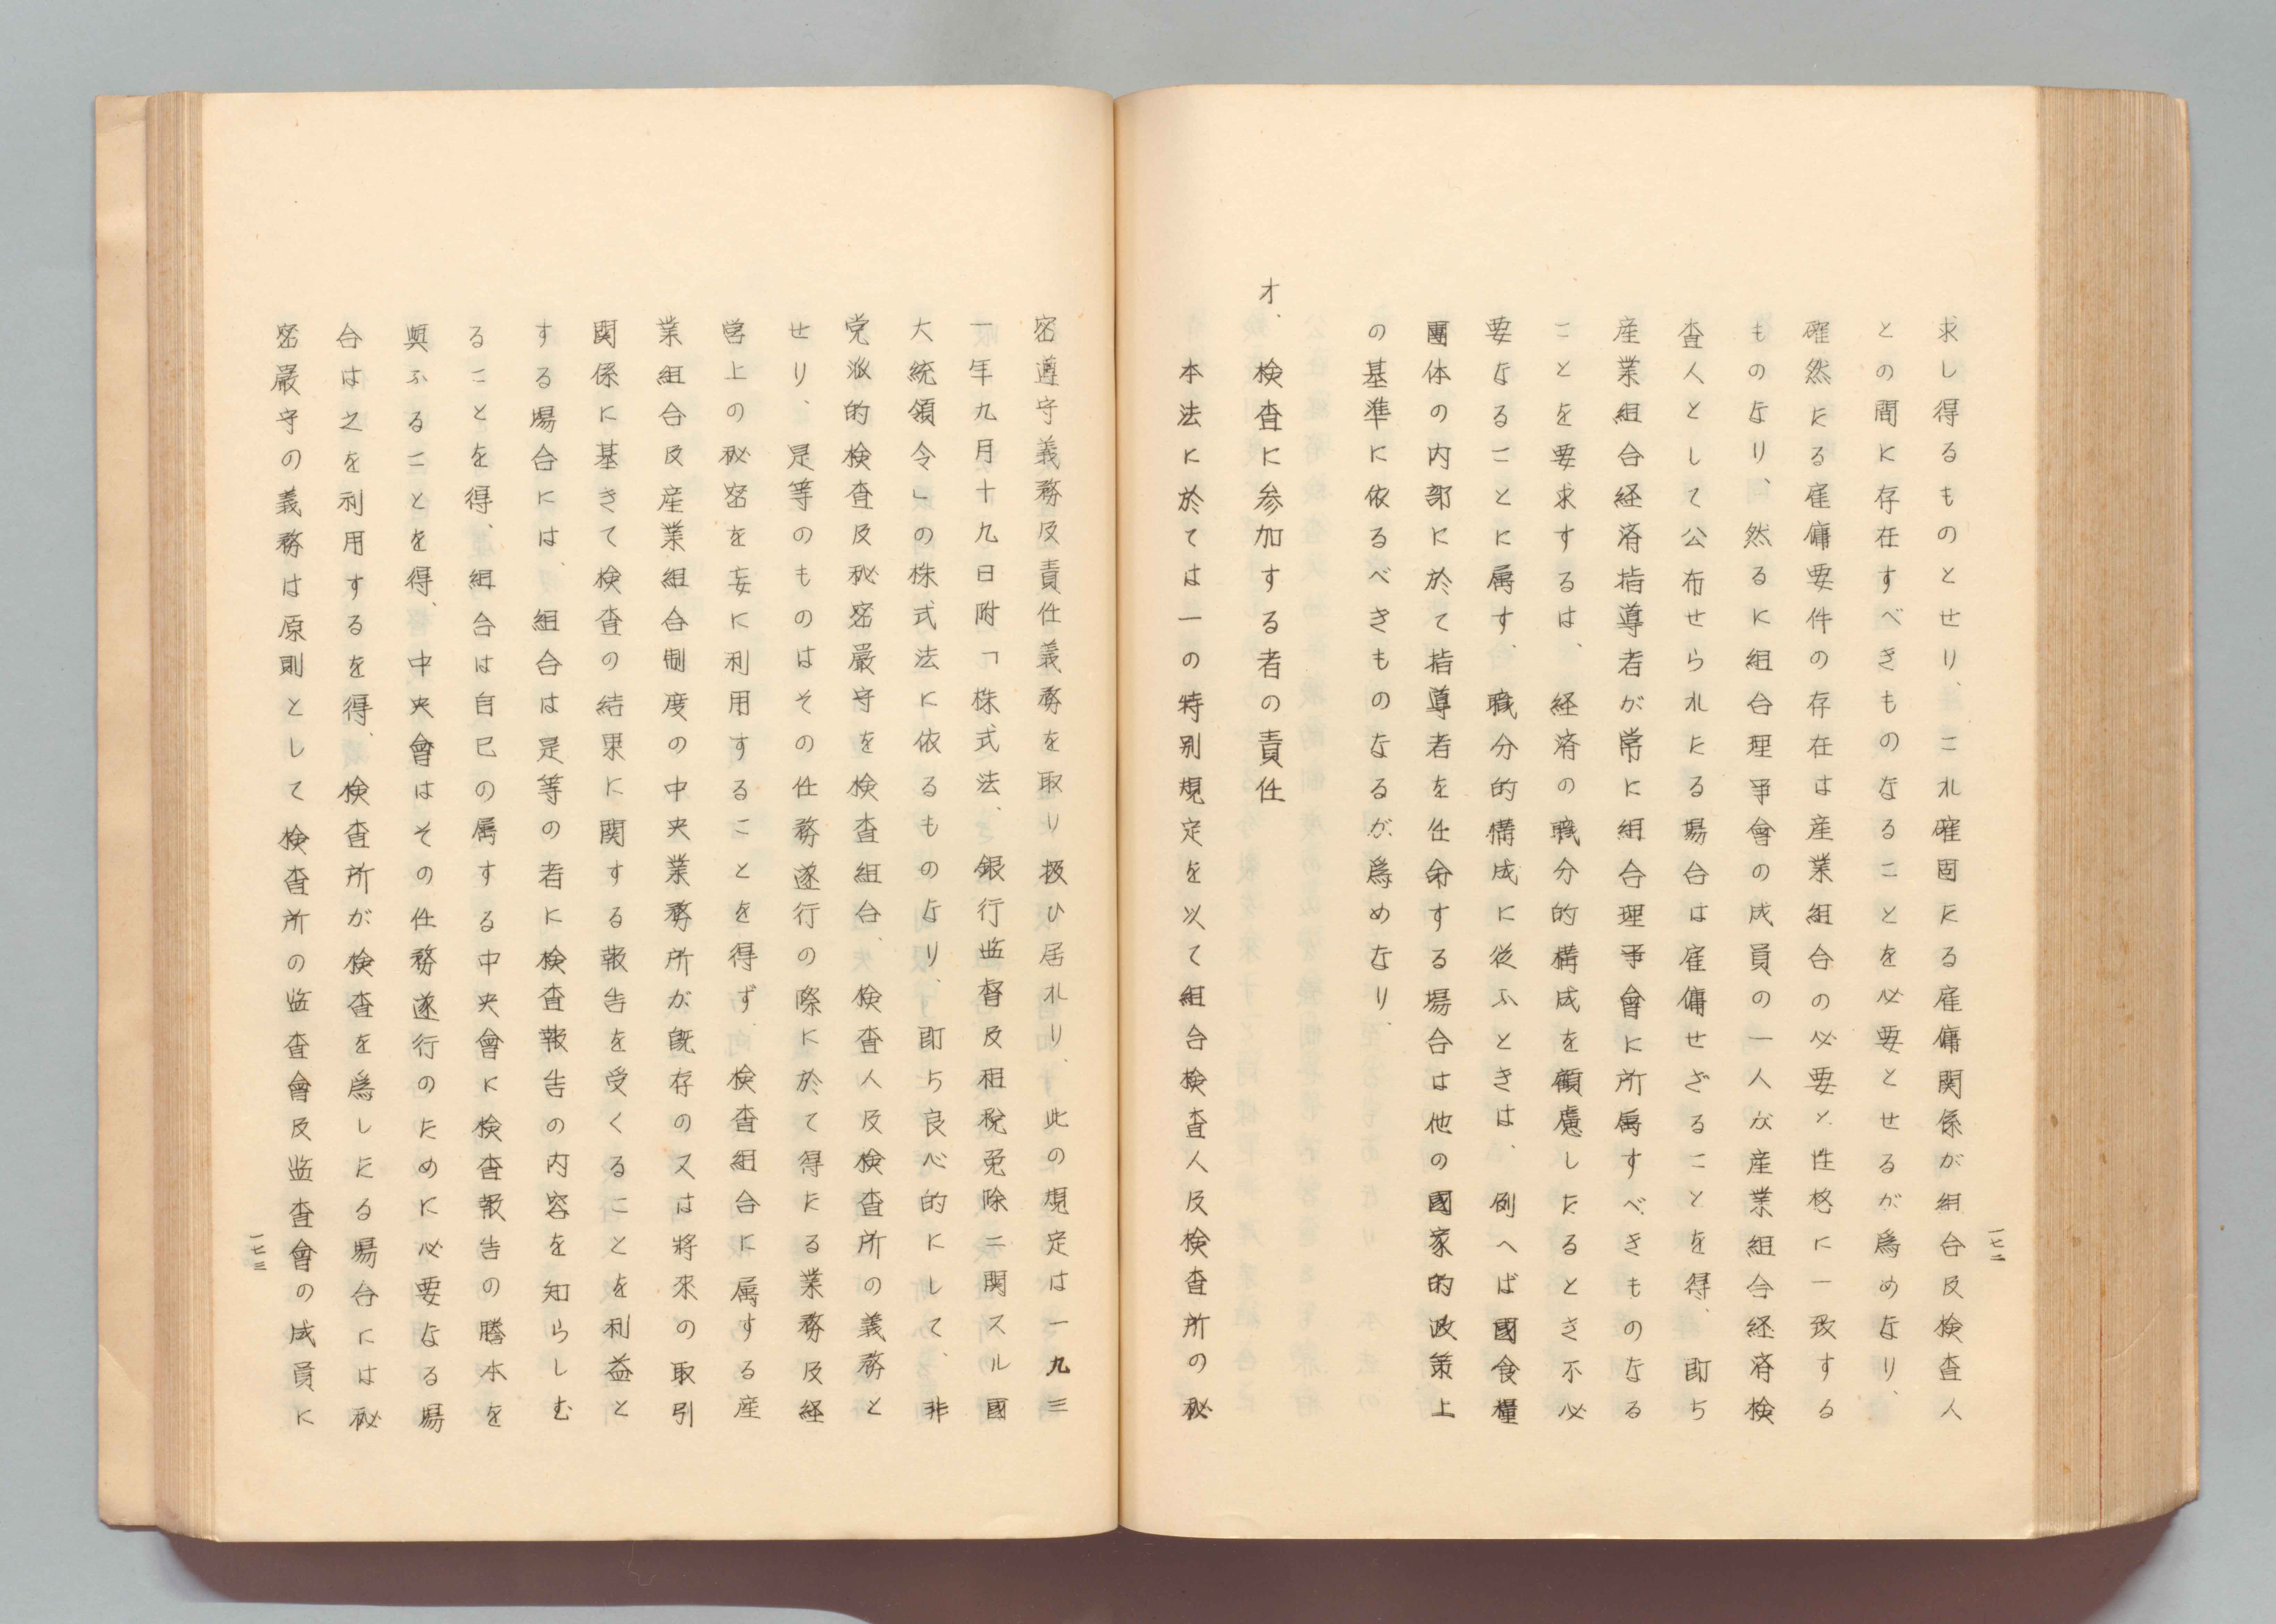 求し得るものとせり、これ確固たる雇傭関係が組合及検査人
との間に存在すべきものなることを必要とせるが爲めなり、
確然たる雇傭要件の存在は産業組合の必要と性格に一致する
ものなり、然るに組合理事會の成員の一人が産業組合経済検
査人として公布せられたる場合は雇傭せざることを得、即ち
産業組合経済指導者が常に組合理事會に所属すべきものなる
ことを要求するは、経済の職分的構成を顧慮したるとき不必
要なることに属す、職分的構成に従ふときは、例へば國食糧
團体の内部に於て指導者を任命する場合は他の國家的政策上
の基準に依るべきものなるが爲めなり、
オ、検査に参加する者の責任
本法に於ては一の特別規定を以て組合検査人及検査所の秘
一七二
密遵守義務及責任義務を取り扱ひ居れり、此の規定は一九三
一年九月十九日附「株式法、銀行監督及租税免除ニ関スル國
大統領令」の株式法に依るものなり、即ち良心的にして、非
党派的検査及秘密嚴守を検査組合、検査人及検査所の義務と
せり、是等のものはその任務遂行の際に於て得たる業務及経
営上の秘密を妄に利用することを得ず、検査組合に属する産
業組合及産業組合制度の中央業務所が既存の又は將來の取引
関係に基きて検査の結果に関する報告を受くることを利益と
する場合には、組合は是等の者に検査報告の内容を知らしむ
ることを得、組合は自己の属する中央會に検査報告の謄本を
與ふることを得、中央會はその任務遂行のために必要なる場
合は之を利用するを得、検査所が検査を爲したる場合には秘
密嚴守の義務は原則として検査所の監査會及監査會の成員に
一七三